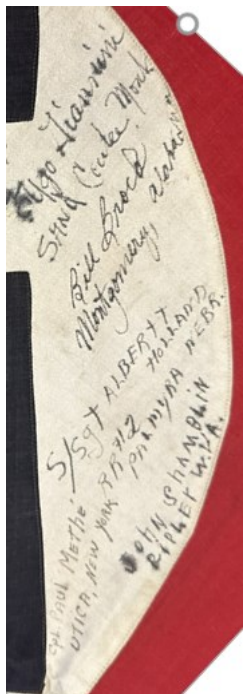 Ugo Giannini
Synd Center Monk
Bill Brock
Montgomery, Alabama
S/Sgt ALBERT T HOLLAND
PALMYRA NEBR.
Cpl PAUL METHE'
UTICA, NEW YORK RR#2
JOHN SHAMBLIN
RIPLEY W.VA.